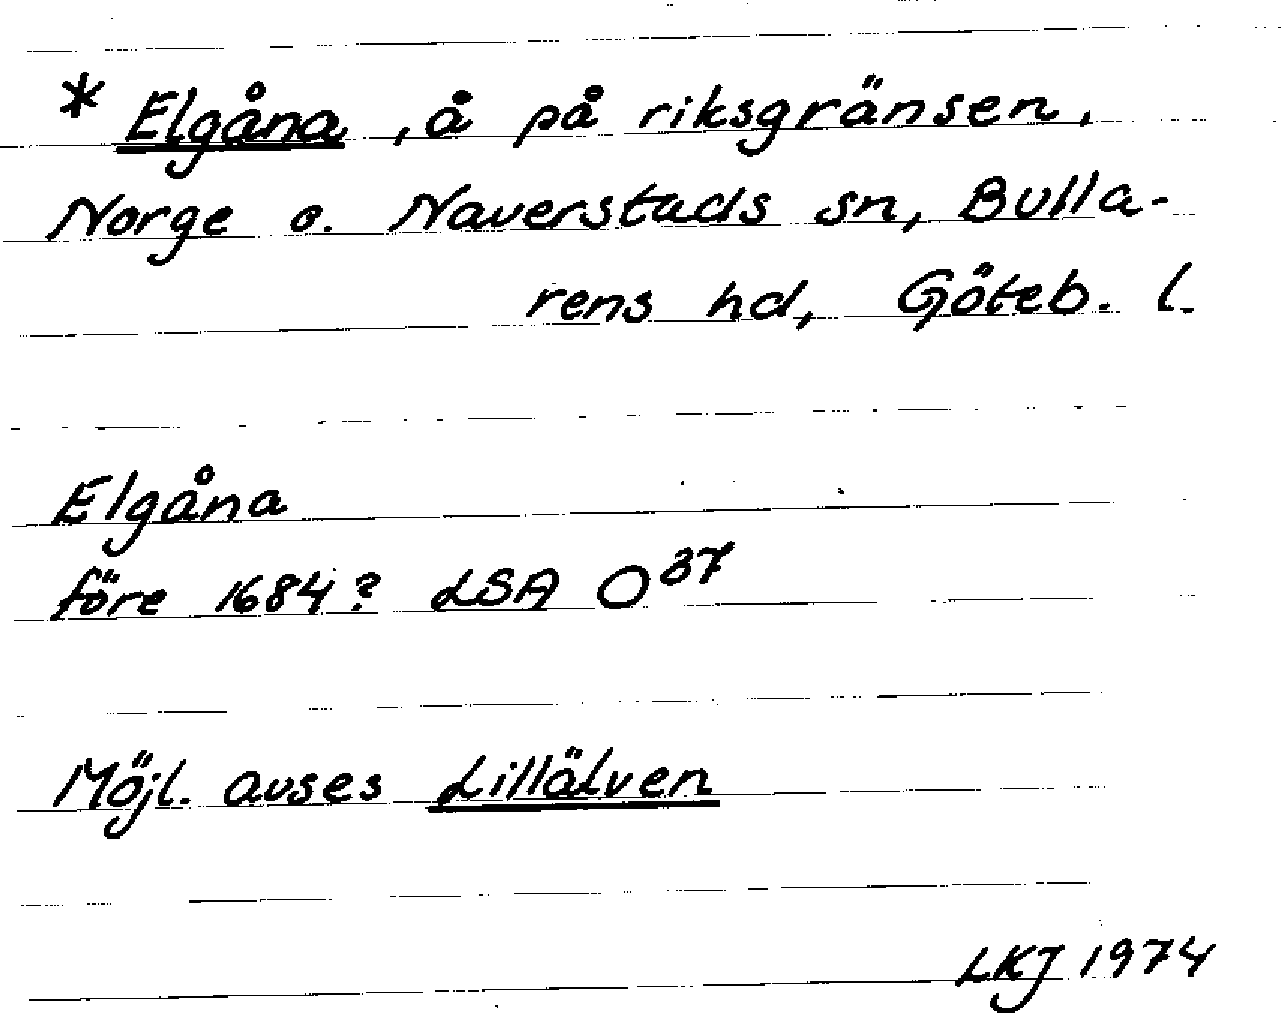 * Elgåna, å på riksgränsen,
Norge o. Naverstads sn, Bulla-
rens hd, Göteb. l.
Elgåna
före 1684? LSA O 37
Möjl. avses Lillälven
LKJ 1974